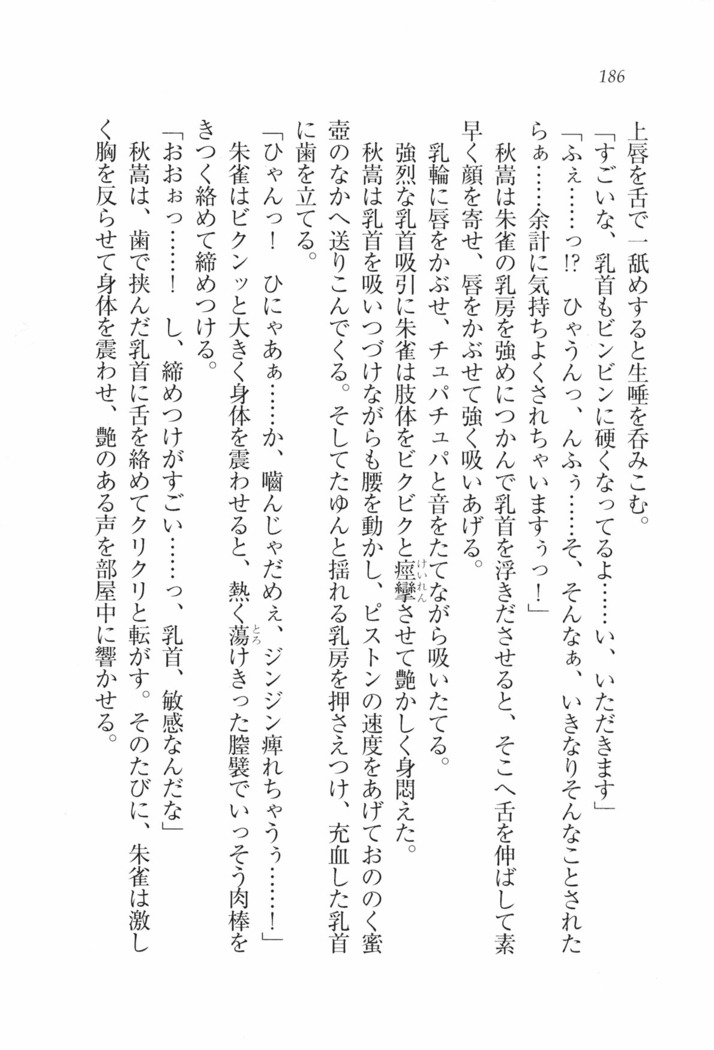 186
上唇を舌で一舐めすると生唾を呑みこむ。
「すごいな、乳首もビンビンに硬くなってるよ……い、いただきます」
「ふぇ……っ!?　ひゃうんっ、んふぅ……そ、そんなぁ、いきなりそんなことされた
らぁ……余計に気持ちよくされちゃいますぅっ！」
秋嵩は朱雀の乳房を強めにつかんで乳首を浮きださせると、そこへ舌を伸ばして素
早く顔を寄せ、唇をかぶせて強く吸いあげる。
乳輪に唇をかぶせ、チュパチュパと音をたてながら吸いたてる。
強烈な乳首吸引に朱雀は肢体をビクビクと痙攣させて艶かしく身悶えた。
けいれん
秋嵩は乳首を吸いつづけながらも腰を動かし、ピストンの速度をあげておののく蜜
壺のなかへ送りこんでくる。そしてたゆんと揺れる乳房を押さえつけ、充血した乳首
に歯を立てる。
「ひゃんっ！　ひにゃあぁ……か、嚙んじゃだめぇ、ジンジン痺れちゃうぅ……！」
朱雀はビクンッと大きく身体を震わせると、熱く蕩けきった膣襞でいっそう肉棒を
とろ
きつく絡めて締めつける。
「おおぉっ……！　し、締めつけがすごい……っ、乳首、敏感なんだな」
秋嵩は、歯で挟んだ乳首に舌を絡めてクリクリと転がす。そのたびに、朱雀は激し
く胸を反らせて身体を震わせ、艶のある声を部屋中に響かせる。